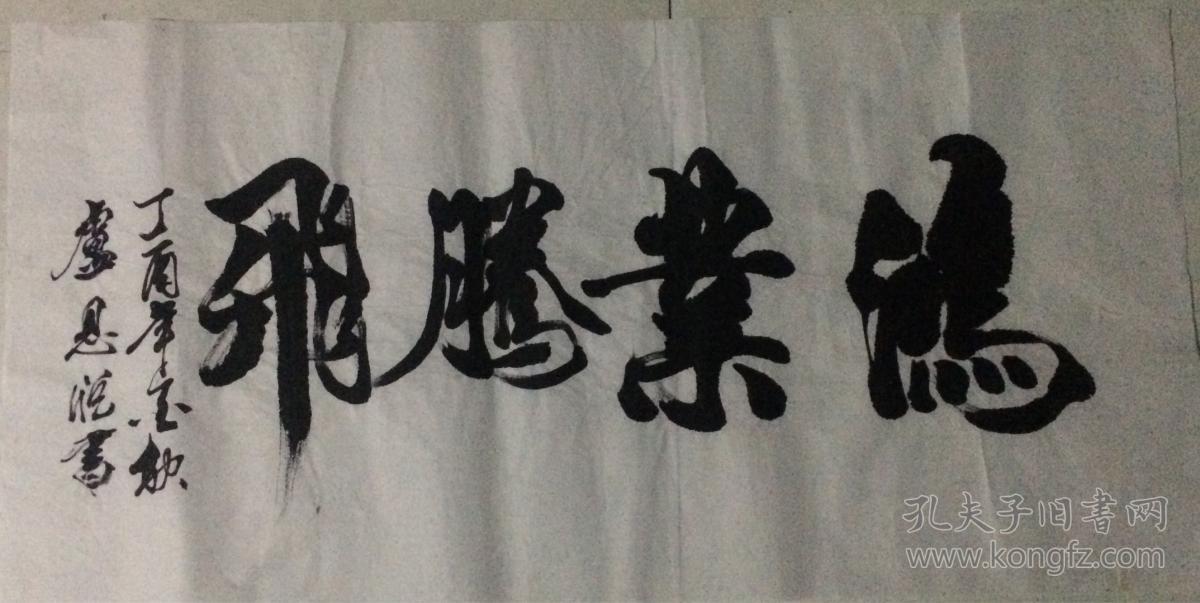 鴻業騰飛
丁酉年金秋
盧恩悦書
孔夫子旧書网
www.kongfz.com